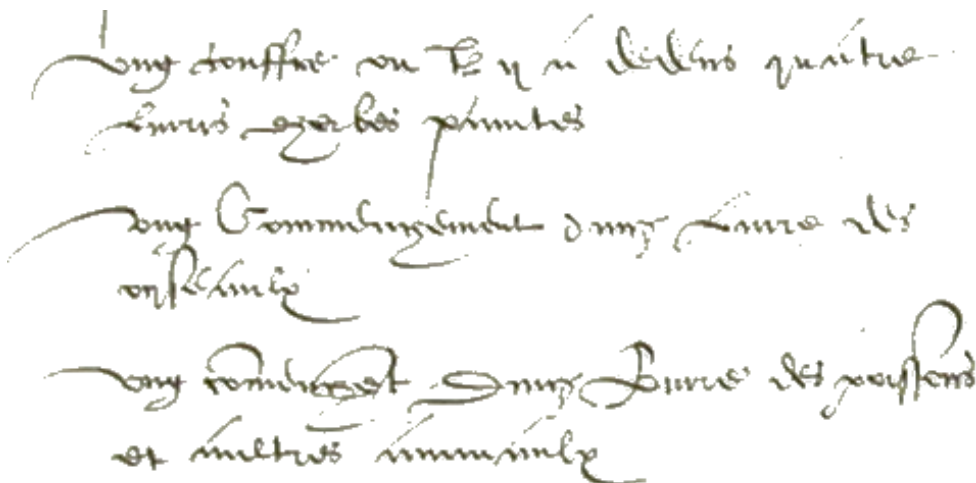 Ung couffre ou il y a dedens quatre
livres erbes paintes
ung Commencement dung livre des
oyseaulx
ung comencet dung livre des poissons
et aultres animaulx